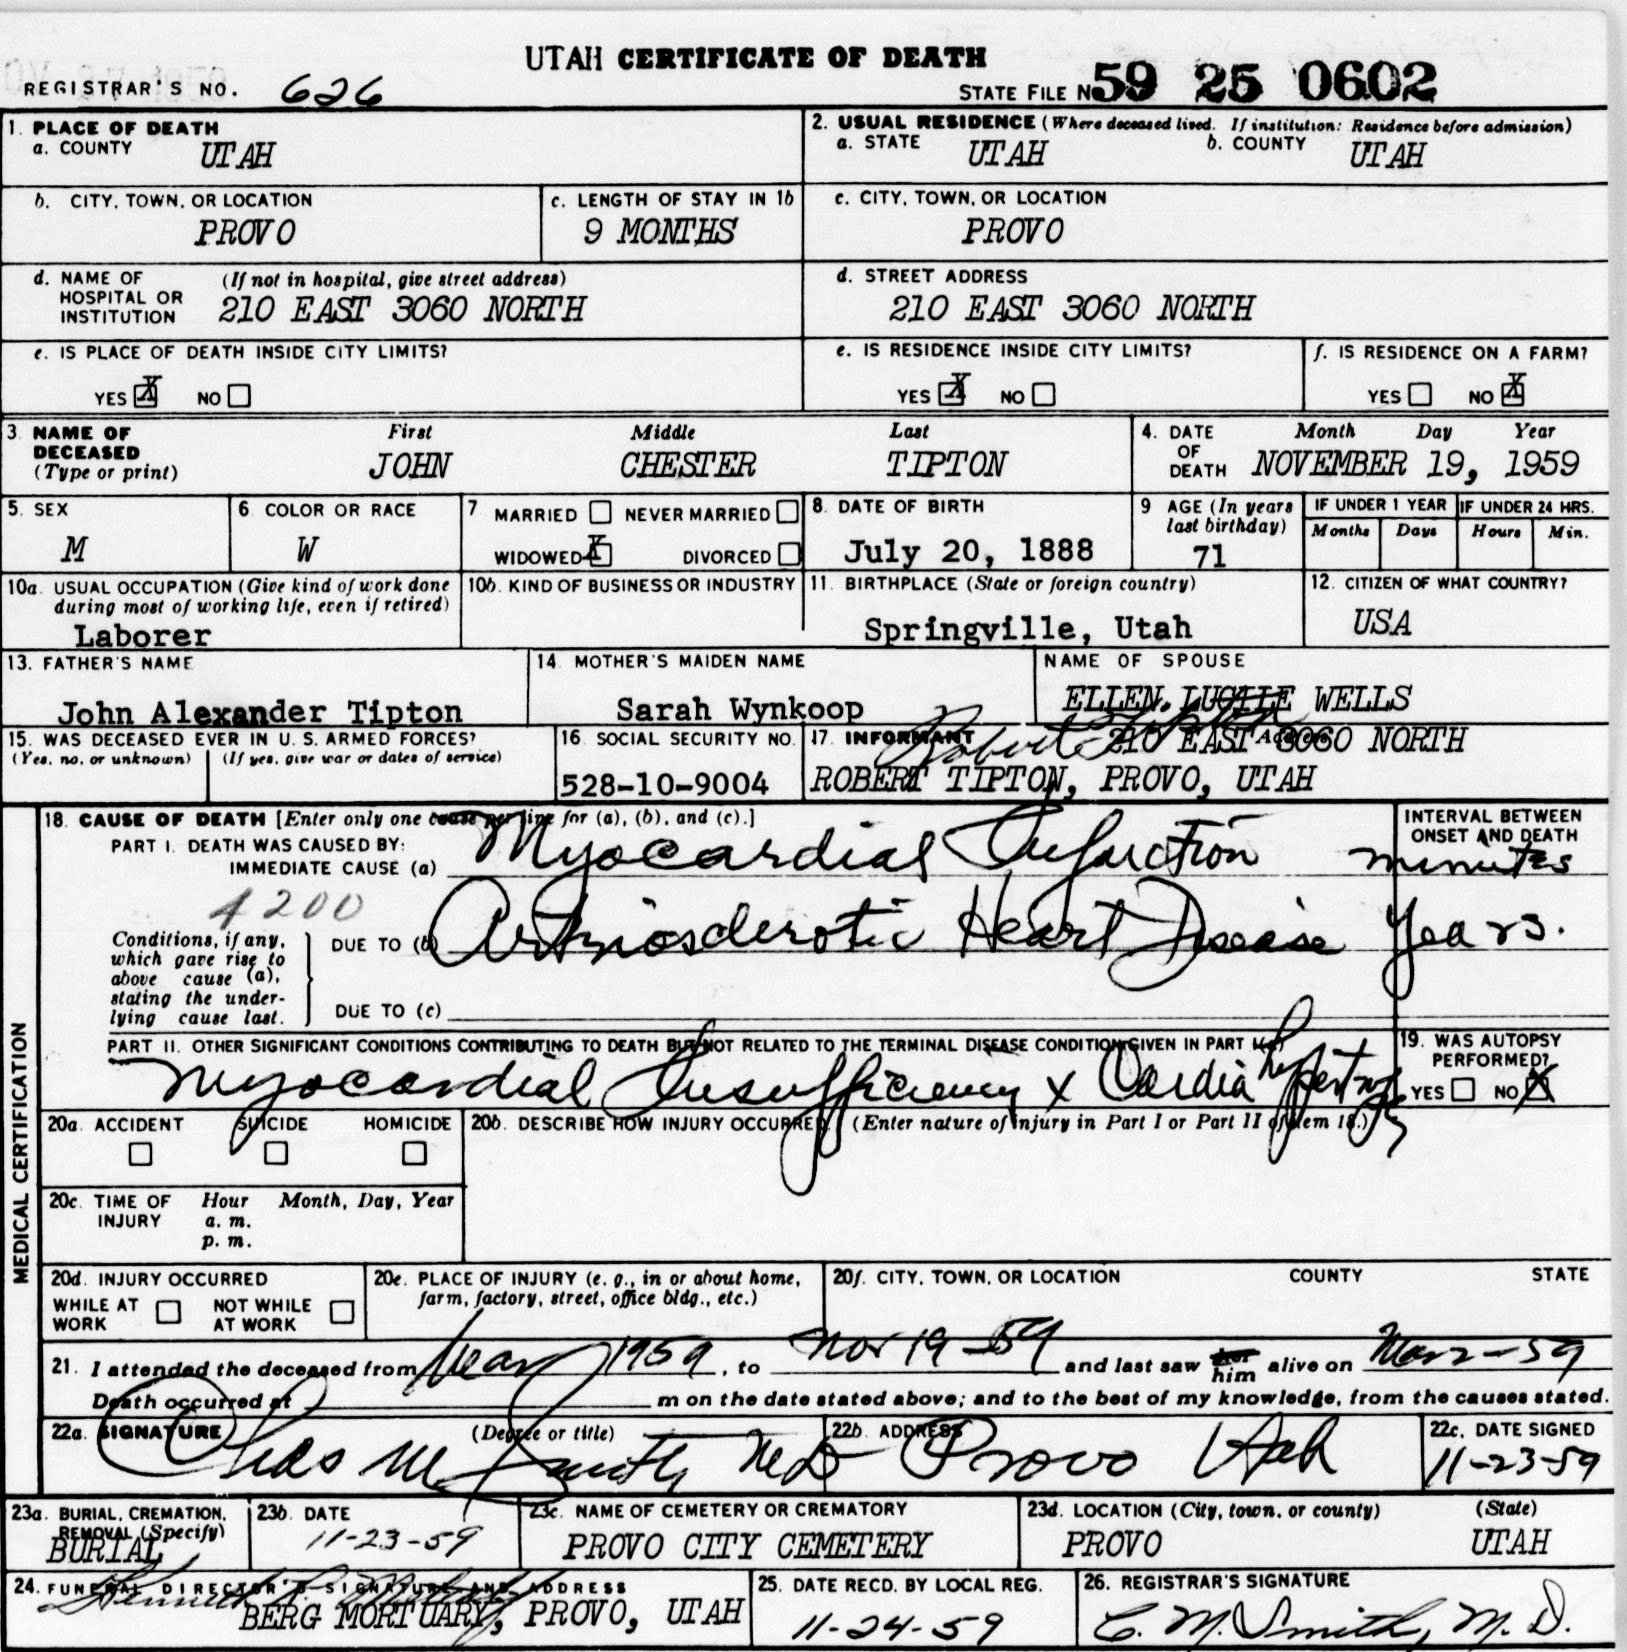 UTAH CERTIFICATE OF DEATH
REGISTRAR'S NO. 626
STATE FILE NO 59 25 0602
1. PLACE OF DEATH
a. COUNTY UTAH
2. USUAL RESIDENCE (Where deceased lived. If institution: Residence before admission)
a. STATE UTAH b. COUNTY UTAH
b. CITY, TOWN, OR LOCATION
PROVO
c. LENGTH OF STAY IN 1b
9 MONTHS
c. CITY, TOWN, OR LOCATION
PROVO
d. NAME OF HOSPITAL OR INSTITUTION (If not in hospital, give street address)
210 EAST 3060 NORTH
d. STREET ADDRESS
210 EAST 3060 NORTH
e. IS PLACE OF DEATH INSIDE CITY LIMITS?
YES X NO
e. IS RESIDENCE INSIDE CITY LIMITS?
YES X NO
f. IS RESIDENCE ON A FARM?
YES NO X
3. NAME OF DECEASED (Type or print)
First Middle Last
JOHN CHESTER TIPTON
4. DATE OF DEATH Month Day Year
NOVEMBER 19, 1959
5. SEX
M
6. COLOR OR RACE
W
7. MARRIED NEVER MARRIED
WIDOWED X DIVORCED
8. DATE OF BIRTH
July 20, 1888
9. AGE (In years last birthday)
71
IF UNDER 1 YEAR
Months Days
IF UNDER 24 HRS.
Hours Min.
10a. USUAL OCCUPATION (Give kind of work done during most of working life, even if retired)
Laborer
10b. KIND OF BUSINESS OR INDUSTRY
11. BIRTHPLACE (State or foreign country)
Springville, Utah
12. CITIZEN OF WHAT COUNTRY?
USA
13. FATHER'S NAME
John Alexander Tipton
14. MOTHER'S MAIDEN NAME
Sarah Wynkoop
NAME OF SPOUSE
ELLEN LUCILE WELLS
15. WAS DECEASED EVER IN U. S. ARMED FORCES?
(Yes, no, or unknown) (If yes, give war or dates of service)
16. SOCIAL SECURITY NO.
528-10-9004
17. INFORMANT Robert Tipton Address
210 EAST 3060 NORTH
ROBERT TIPTON, PROVO, UTAH
MEDICAL CERTIFICATION
18. CAUSE OF DEATH [Enter only one cause per line for (a), (b), and (c).]
INTERVAL BETWEEN ONSET AND DEATH
PART I. DEATH WAS CAUSED BY:
IMMEDIATE CAUSE (a) Myocardial Infarction minutes
4200
Conditions, if any, which gave rise to above cause (a), stating the underlying cause last.
DUE TO (b) Arteriosclerotic Heart Disease Years.
DUE TO (c)
PART II. OTHER SIGNIFICANT CONDITIONS CONTRIBUTING TO DEATH BUT NOT RELATED TO THE TERMINAL DISEASE CONDITION GIVEN IN PART I(a)
Myocardial Insufficiency & Cardia
19. WAS AUTOPSY PERFORMED?
YES NO X
20a. ACCIDENT SUICIDE HOMICIDE
20b. DESCRIBE HOW INJURY OCCURRED. (Enter nature of injury in Part I or Part II of item 18.)
20c. TIME OF INJURY Hour Month, Day, Year
a. m.
p. m.
20d. INJURY OCCURRED
WHILE AT WORK NOT WHILE AT WORK
20e. PLACE OF INJURY (e. g., in or about home, farm, factory, street, office bldg., etc.)
20f. CITY, TOWN, OR LOCATION COUNTY STATE
21. I attended the deceased from 1959, to Nov 19-59 and last saw her him alive on 59
Death occurred at m on the date stated above; and to the best of my knowledge, from the causes stated.
22a. SIGNATURE (Degree or title)
Chas M Smith MD
22b. ADDRESS
Provo Utah
22c. DATE SIGNED
11-23-59
23a. BURIAL, CREMATION, REMOVAL (Specify)
BURIAL
23b. DATE
11-23-59
23c. NAME OF CEMETERY OR CREMATORY
PROVO CITY CEMETERY
23d. LOCATION (City, town, or county) (State)
PROVO UTAH
24. FUNERAL DIRECTOR'S SIGNATURE AND ADDRESS
BERG MORTUARY, PROVO, UTAH
25. DATE RECD. BY LOCAL REG.
11-24-59
26. REGISTRAR'S SIGNATURE
C. M. Smith, M. D.